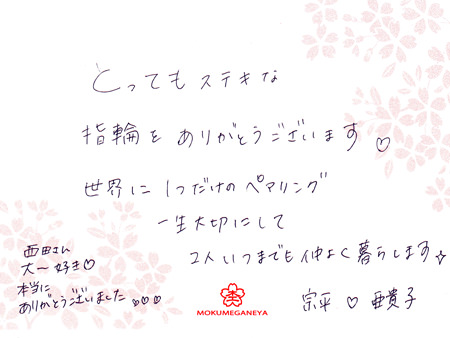 とってもステキな
指輪をありがとうございます♡
世界に1つだけのペアリング
一生大切にして
2人いつまでも仲よく暮らします☆
宗平 ♡ 亜貴子
西田さん
大〜好き♡
本当に
ありがとうございました♡♡♡
MOKUMEGANEYA